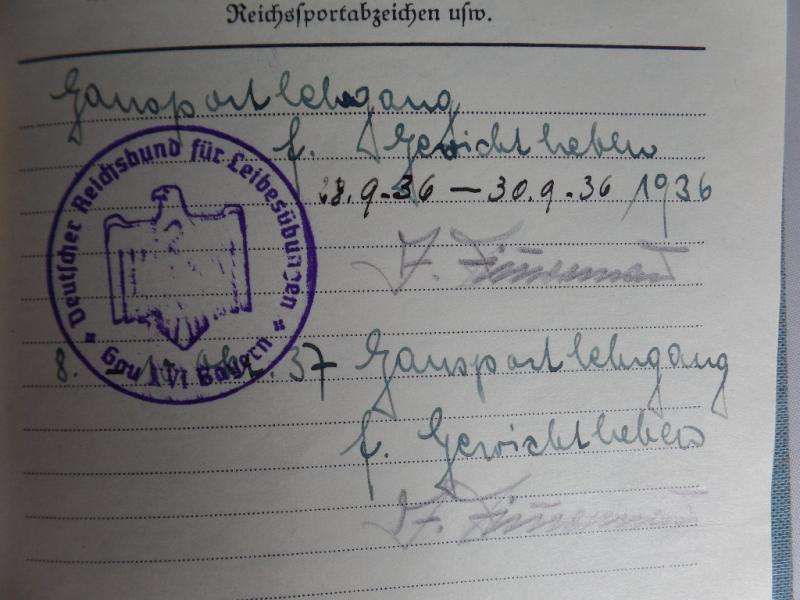 Reichssportabzeichen usw.
Gausportlehrgang
f. Gewichtheben
28.9-36 — 30.9-36 1936
Deutscher Reichsbund für Leibesübungen
Gau XVI Bayern
8. 37 Gausportlehrgang
f. Gewichtheben